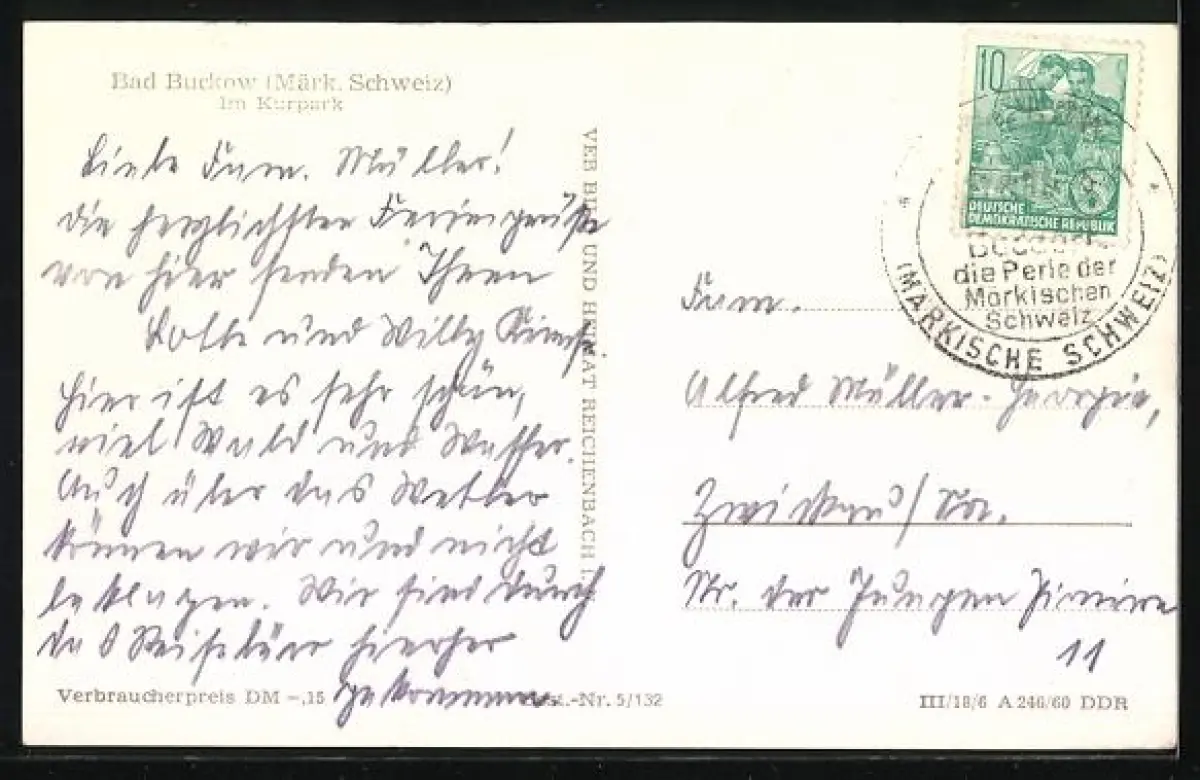 Bad Buckow (Märk. Schweiz)
Im Kurpark
Liebe Fam. Müller!
Die herzlichsten Feriengrüße
von hier senden Ihnen
Lotte und Willy
Hier ist es sehr schön,
viel Wald und Wasser.
Auch über das Wetter
können wir uns nicht
beklagen. Wir sind durch
das Reisebüro hierher
gekommen.
Verbraucherpreis DM -,15
-Nr. 5/132
VEB UND HEIMAT REICHENBACH
10
DEUTSCHE
DEMOKRATISCHE REPUBLIK
die Perle der
Märkischen
Schweiz
(MÄRKISCHE SCHWEIZ)
Fam.
Alfred Müller-
Zwickau/Sa.
Str. der Jungen Pioniere
11
III/18/6 A 246/60 DDR